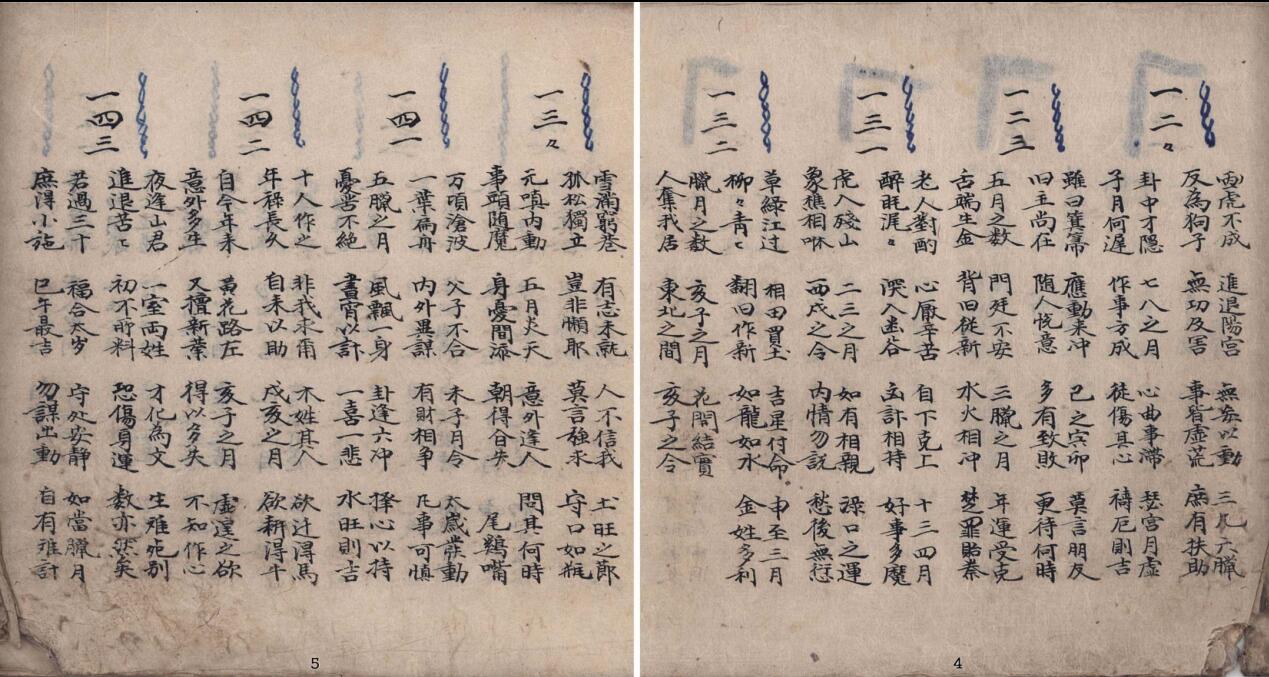 一二々
虎不成 進退陽宮 無妄以動 三九六臘
反為狗子 無功反害 事皆虛荒 庶有扶助
卦中才隱 七八之月 心曲事滯 宮月虛
子月何遲 作事方成 徒傷其心 禱厄則吉
一二三
雖曰箕箒 應動来冲 巳之寅卯 莫言朋友
旧主尚在 隨人悅意 多有致敗 更待何時
五月之数 門廷不安 三臘之月 年運受克
舌端生金 背旧從新 水火相冲 楚罪貽秦
一三一
老人對酌 心厭辛苦 自下克上 十三四月
醉既渥々 哭入幽谷 計相持 好事多魔
虎入殘山 二三之月 如有相親 祿口之運
象樵相咻 西戌之令 內情勿說 愁後無愆
一三二
草綠江过 相田買土 吉星付命 申至三月
柳々青々 翻旧作新 如龍如水 金姓多利
臘月之数 亥子之月 花開結實
人奪我居 東北之間 亥子之令
4
一三々
雪滿窮巷 有志未就 人不信我 土旺之節
孤松獨立 豈非懶耶 莫言強求 守口如瓶
元嗔內動 五月炎天 意外逢人 問其何時
事頭隨魔 身憂間添 朝得合失 尾鷄嘴
一四一
万頃滄波 父子不合 未子月令 太歲發動
一葉扁舟 內外異謀 有財相争 凡事可慎
五臘之月 風飄一身 卦逢六冲 擇心以持
憂苦不絶 晝宵以計 一喜一悲 水旺則吉
一四二
十人作之 非我求甯 木姓其人 欲辻得馬
年移長久 自来以助 戌亥之月 欲耕得牛
自今年来 黃花路左 亥子之月 虛遑之欲
意外多生 又擅新業 得以多失 不知作心
一四三
夜逢山君 一室両姓 才化為文 生难死别
進退苦々 初不所料 恐傷身運 数亦然矣
若過三十 福合太岁 守处安静 如當臘月
庶得小施 巳午最吉 勿謀出動 自有难計
5